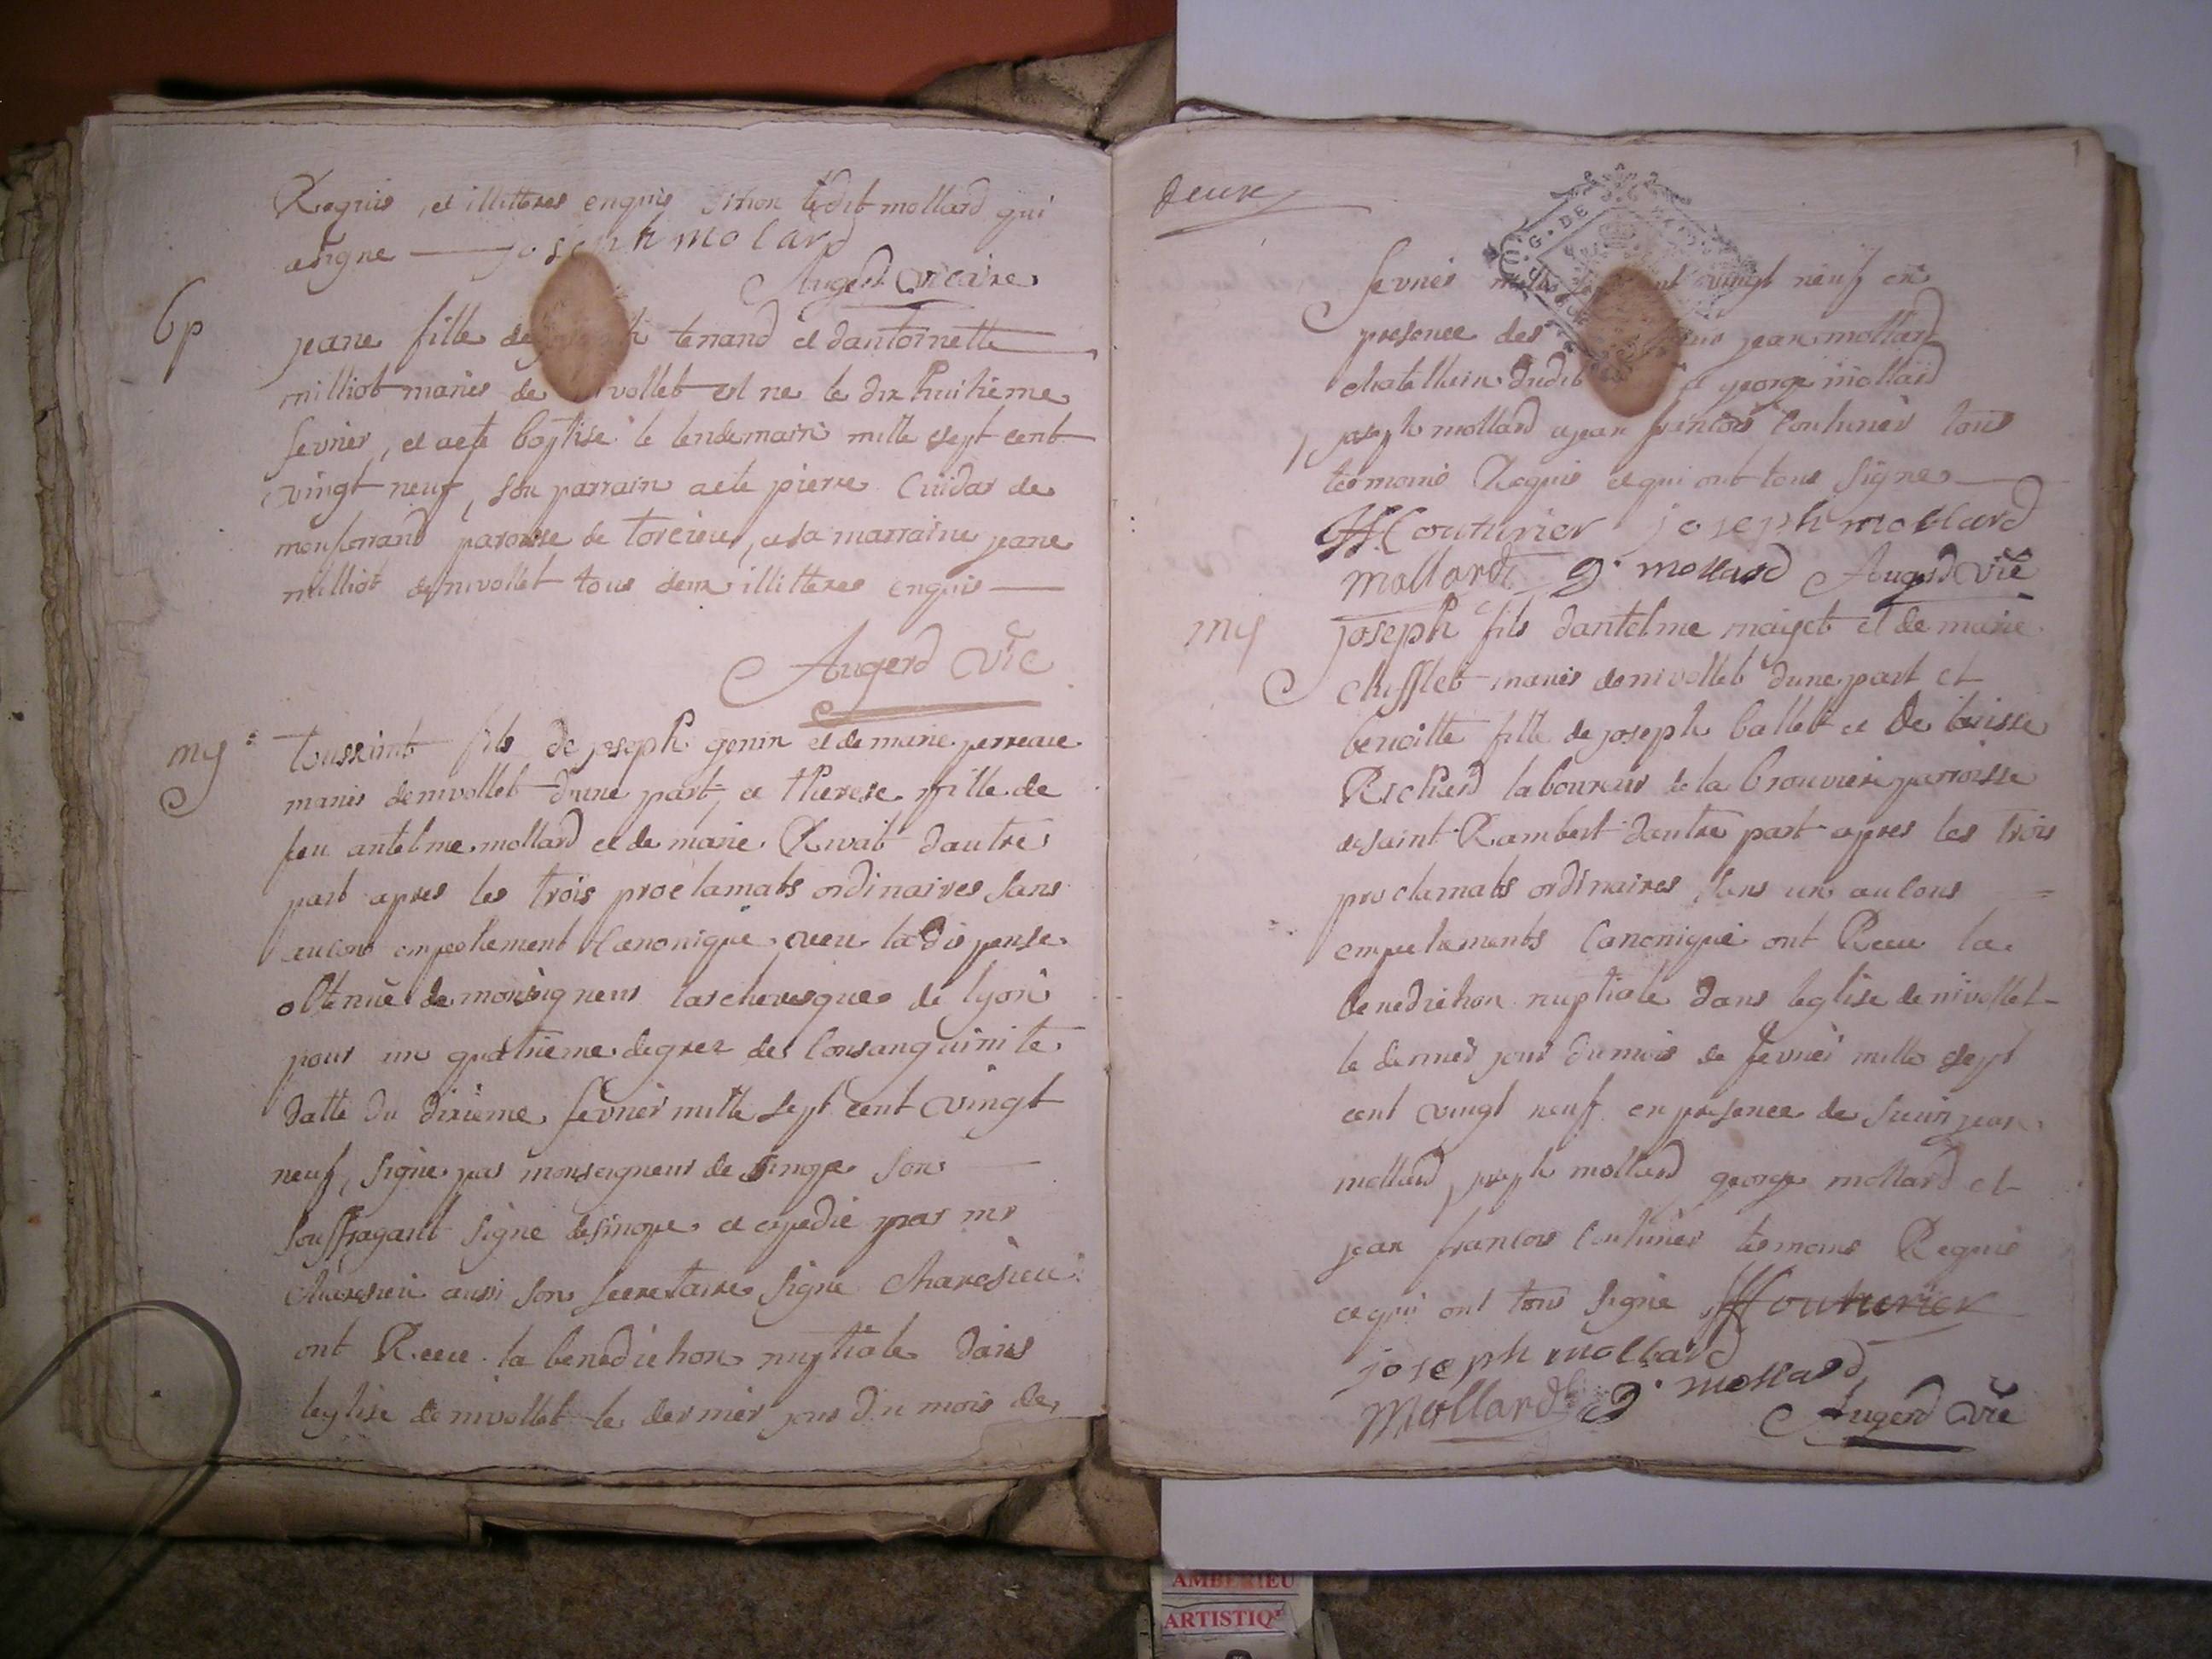 Requis, et illitteres enquis sinon ledit mollard qui
asigne joseph molard
Augerd vicaire
bp
jeane fille de tenand et dantoinette
milliot mariés de vollet est ne le dix huitieme
fevrier, et aete baptisé le lendemain mille sept cent
vingt neuf, son parrain aete pierre Cuidar de
monferrand paroisse de torcieu, et sa marraine jeane
milliot de nivollet tous deux illitteres enquis
Augerd vic
mg
toussaint fils de joseph genin et de marie perreau
mariés de nivollet dune part, et therese fille de
feu antelme mollard et de marie Rivat dautre
part apres les trois proclamats ordinaires sans
aucuns empechement Canonique, veu la dispense
obtenue de monsigneur larchevesque de lyon
pour un quatrieme degrez de Consanguinite
datté du dixieme fevrier mille sept cent vingt
neuf, signe par monseigneur de sinope son
souffragant signé de sinope et expedié par mr
charesieu aussi son secretaire signe charesieu
ont Receu la benediction nuptiale dans
leglise de nivollet le dernier jour du mois de
deux
fevrier mille vingt neuf en
presence des jean mollard
chatellain dudit et george mollard
joseph mollard et jean francois Couturier tous
tesmoins Requis et qui ont tous signe
JF Couturier joseph mollard
Mollard g. mollard Augerd vic
mg
joseph fils dantelme et de marie
chifflet mariés de nivollet dune part et
benoitte fille de joseph ballet et de
Richard laboureur de la paroisse
de saint Rambert dautre part apres les trois
proclamats ordinaires sans aucuns
empechements Canonique ont Receu la
benediction nuptiale dans leglise de nivollet
le dernier jour du mois de fevrier mille sept
cent vingt neuf en presence de jean
mollard, joseph mollard george mollard et
jean francois Couturier tesmoins Requis
et qui ont tous signe JF Couturier
joseph mollard
Mollard g. mollard
Augerd vic
AMBERIEU
ARTISTIQ